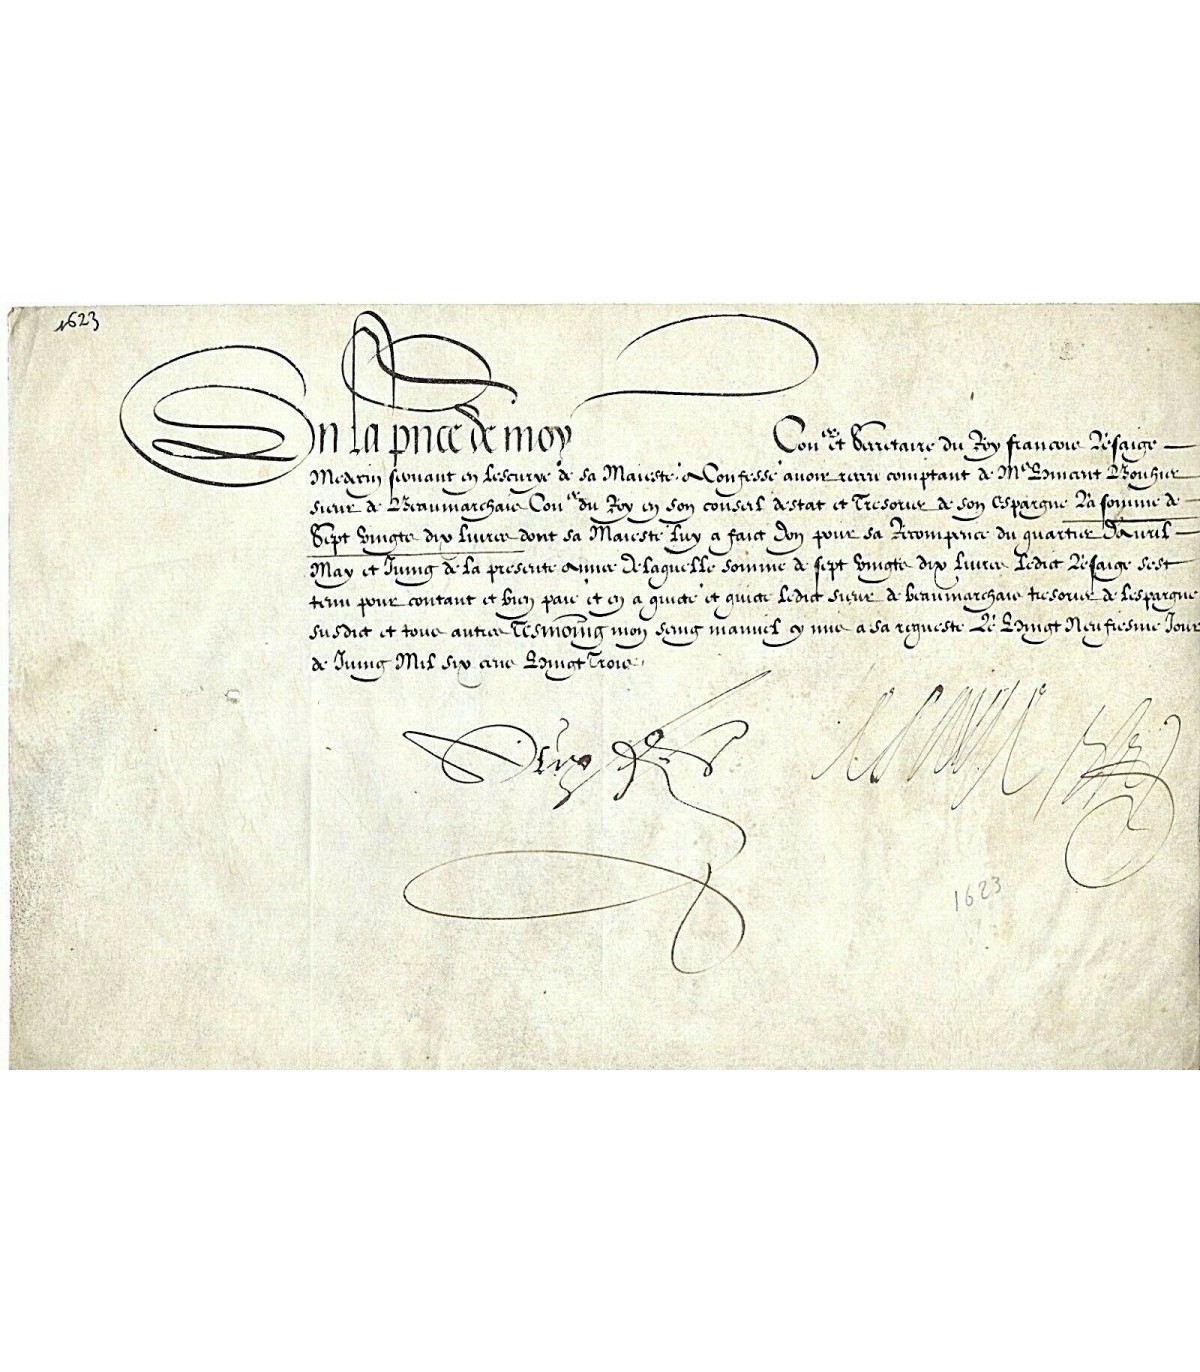 1623
En la pnce de moy Con.er et Secretaire du Roy francois Lesaige
Medecin servant en lescurye de sa Maiesté a Confessé auoir receu comptant de Me Vincent Bouhier
sieur de Beaumarchais Con.er du Roy en son conseil destat et Tresorier de son Espargne La somme de
Sept vingts dix livres dont sa Maiesté luy a faict don pour sa Recompence du quartier d'Auril
May et Juing de la presente annee de laquelle somme de sept vingts dix livres ledict Lesaige sest
tenu pour contant et bien paié et en a quicté et quicte ledict sieur de beaumarchais tresorier de lespargne
susdict et tous autres Tesmoing mon seing manuel cy mis a sa requeste Le Vingt Neufiesme Jour
de Juing Mil six cens Vingt Trois
lesaige
1623